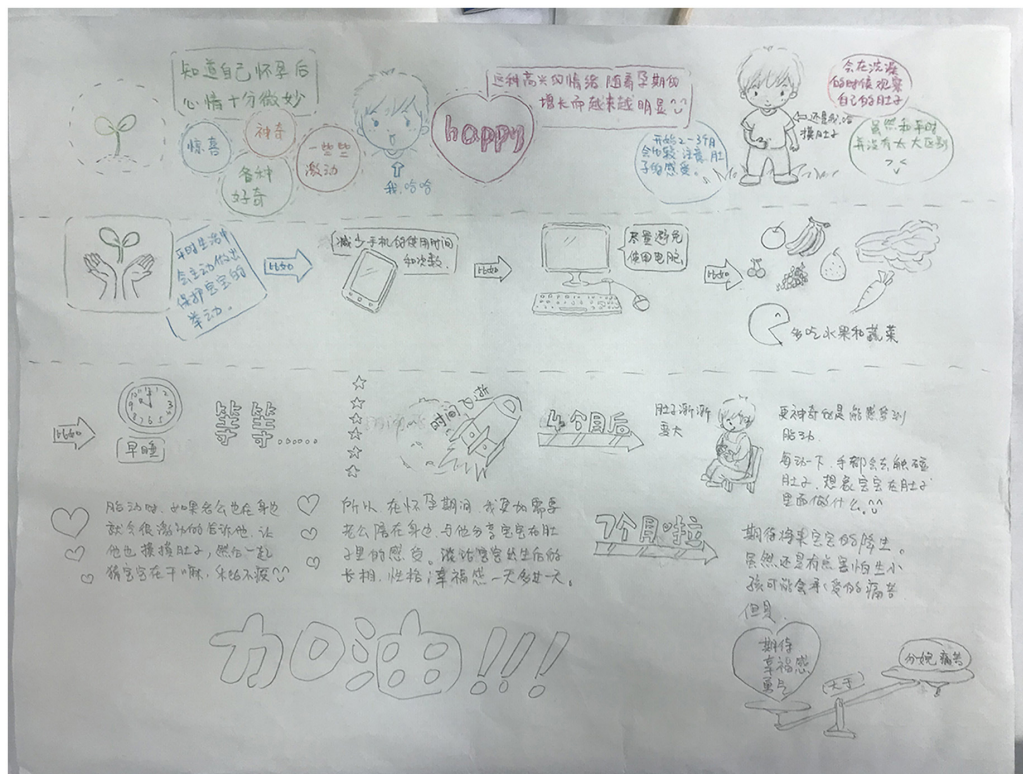 知道自己怀孕后
心情十分微妙
惊喜
神奇
各种
好奇
一些些
激动
我,哈哈
happy
这种高兴的情绪随着孕期的
增长而越来越明显
开始2~3个月
会比较注意肚
子的感受。
还喜欢
摸肚子
会在洗澡
的时候观察
自己的肚子
虽然和平时
并没有太大区别
平时生活中
会主动做出
保护宝宝的
举动。
比如
减少手机的使用时间
和次数.
比如
尽量避免
使用电脑
比如
多吃水果和蔬菜
比如
早睡
等等......
时间飞逝
4个月后
肚子渐渐
变大
更神奇的是能感受到
胎动
每动一下,手都会去触碰
肚子,想象宝宝在肚子
里面做什么。
胎动时,如果老公也在身边
就会很激动的告诉他,让
他也摸摸肚子,然后一起
猜宝宝在干嘛,乐此不疲
所以,在怀孕期间,我更加需要
老公陪在身边,与他分享宝宝在肚
子里的感受。谈论宝宝出生后的
长相,性格;幸福感一天多过一天。
7个月啦
期待将来宝宝的降生。
虽然还是有点害怕生小
孩可能会承受的痛苦
但是,
期待
幸福感
勇气
大于
分娩痛苦
加油!!!